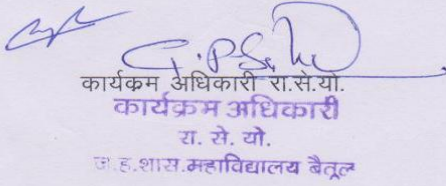 कार्यक्रम अधिकारी रा.से.यो.
कार्यक्रम अधिकारी
रा. से. यो.
ज.ह.शास.महाविद्यालय बैतूल